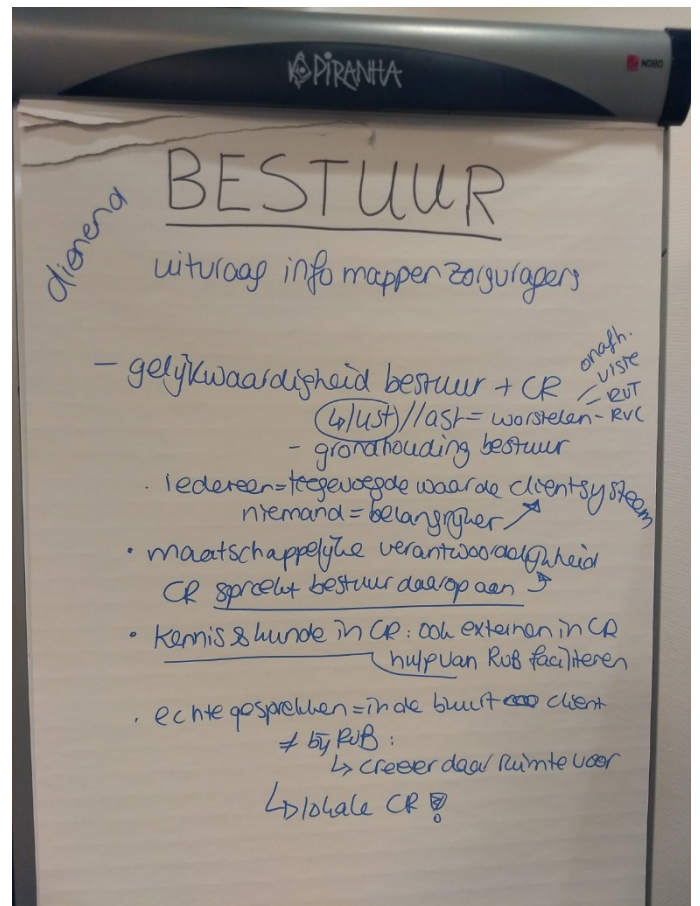 PIRANHA
NOBO
BESTUUR
dienend
uitvraag info mappen zorgvragers
- gelijkwaardigheid bestuur + CR
onafh.
visie
RVT
↳ lust // last = worstelen - RVC
- grondhouding bestuur
. iedereen = toegevoegde waarde clientsysteem
niemand = belangrijker ↗
• maatschappelijke verantwoordelijkheid
CR spreekt bestuur daarop aan
• kennis & kunde in CR : ook externen in CR
hulp van RvB faciliteren
. echte gesprekken = in de buurt client
≠ bij RvB :
↳ creeer daar ruimte voor
↳ lokale CR !